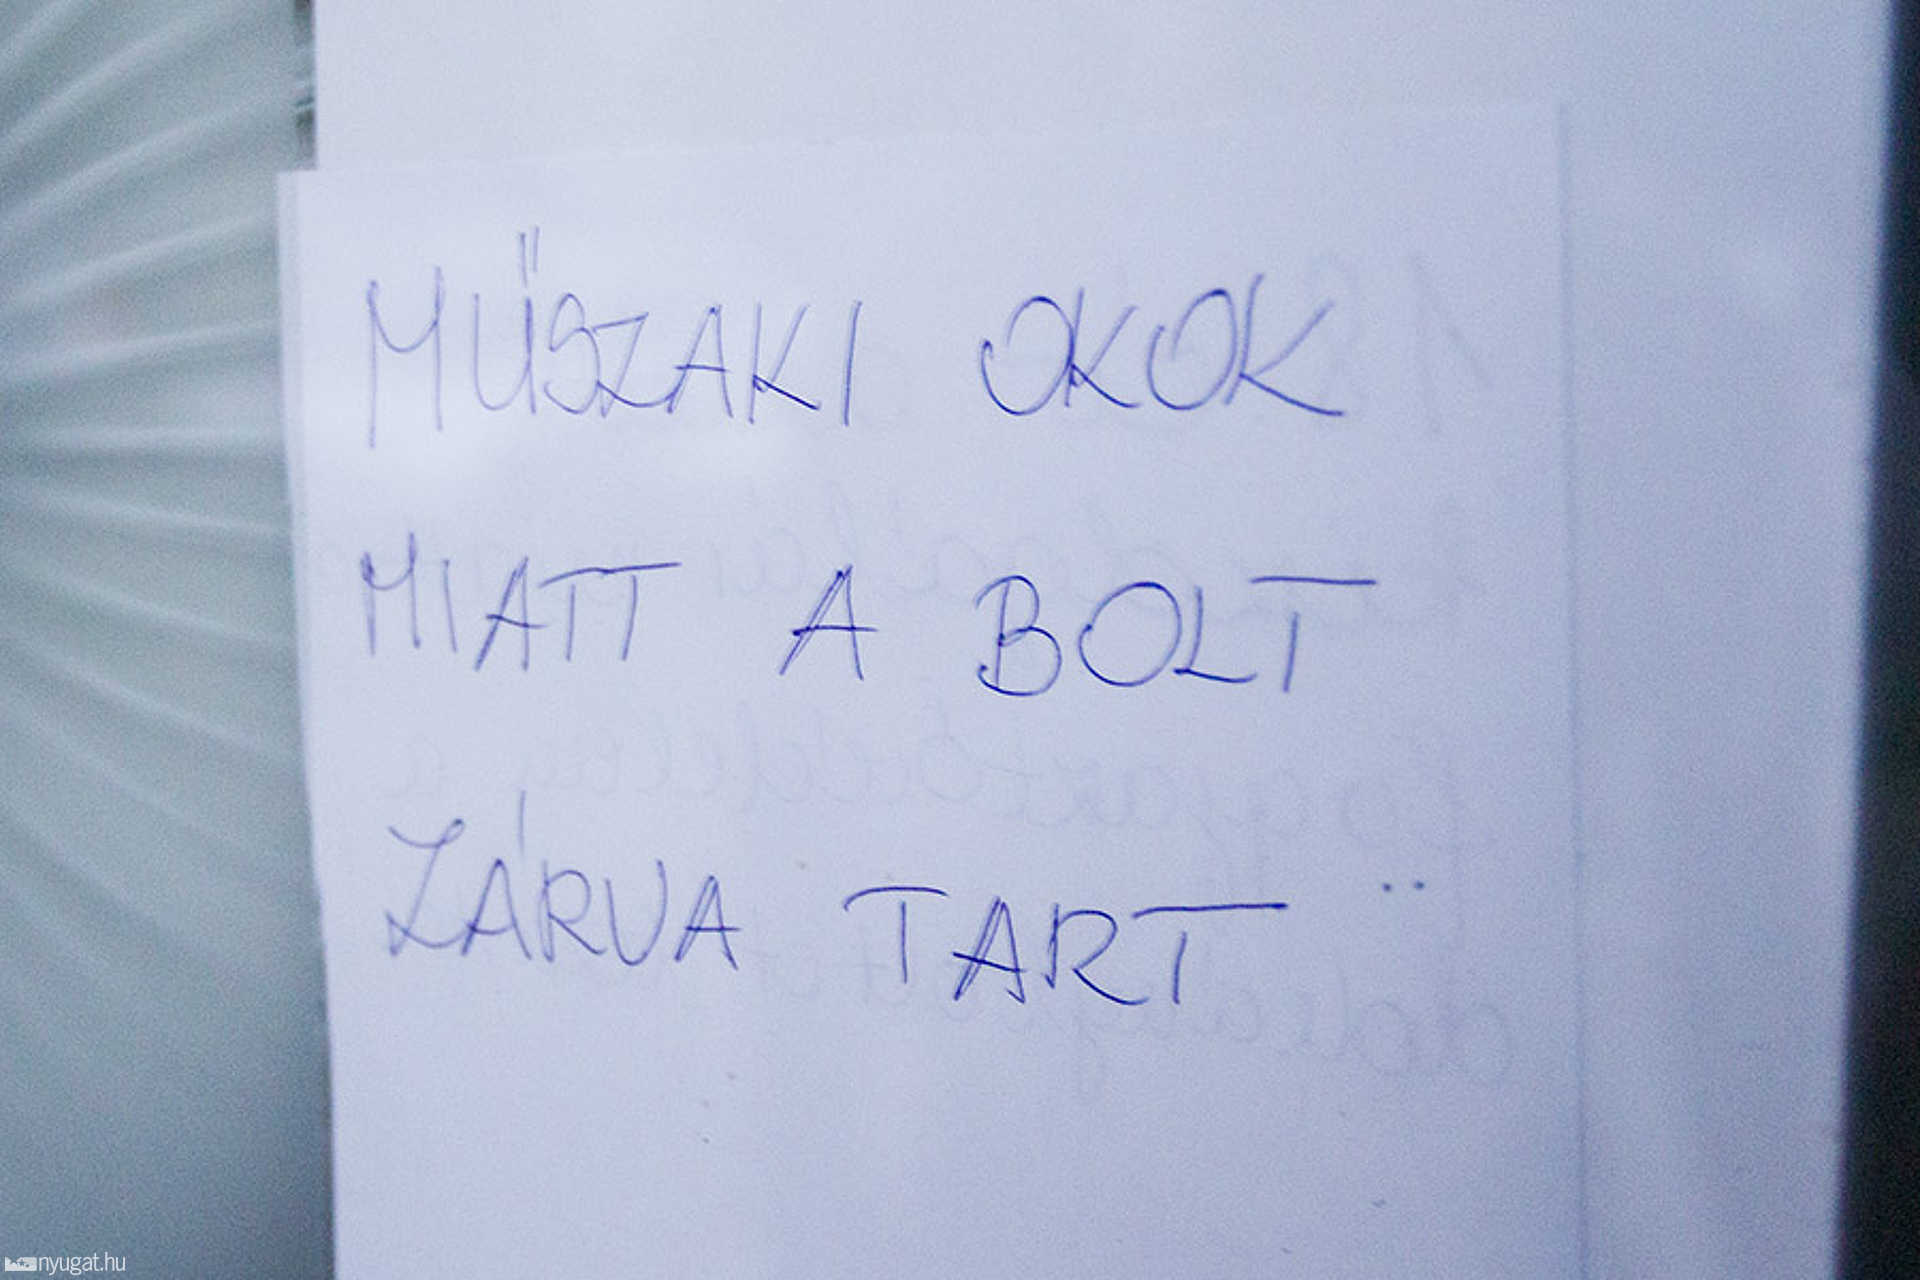 MŰSZAKI OKOK
MIATT A BOLT
ZÁRVA TART
nyugat.hu